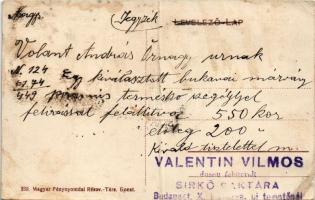 (Jegyzék
LEVELEZŐ-LAP
Volant András Őrnagy urnak
N. 124 Egy kiválasztott bukanai márvány
01.74
449 piramis terméskő szegélyel
felirással felállitva 550 kor
előleg 200 "
Kiváló tisztelettel
VALENTIN VILMOS
SIRKŐ RAKTÁRA
Budapest, X.
Magyar Fénynyomdai Részv.-Társ. Bpest.